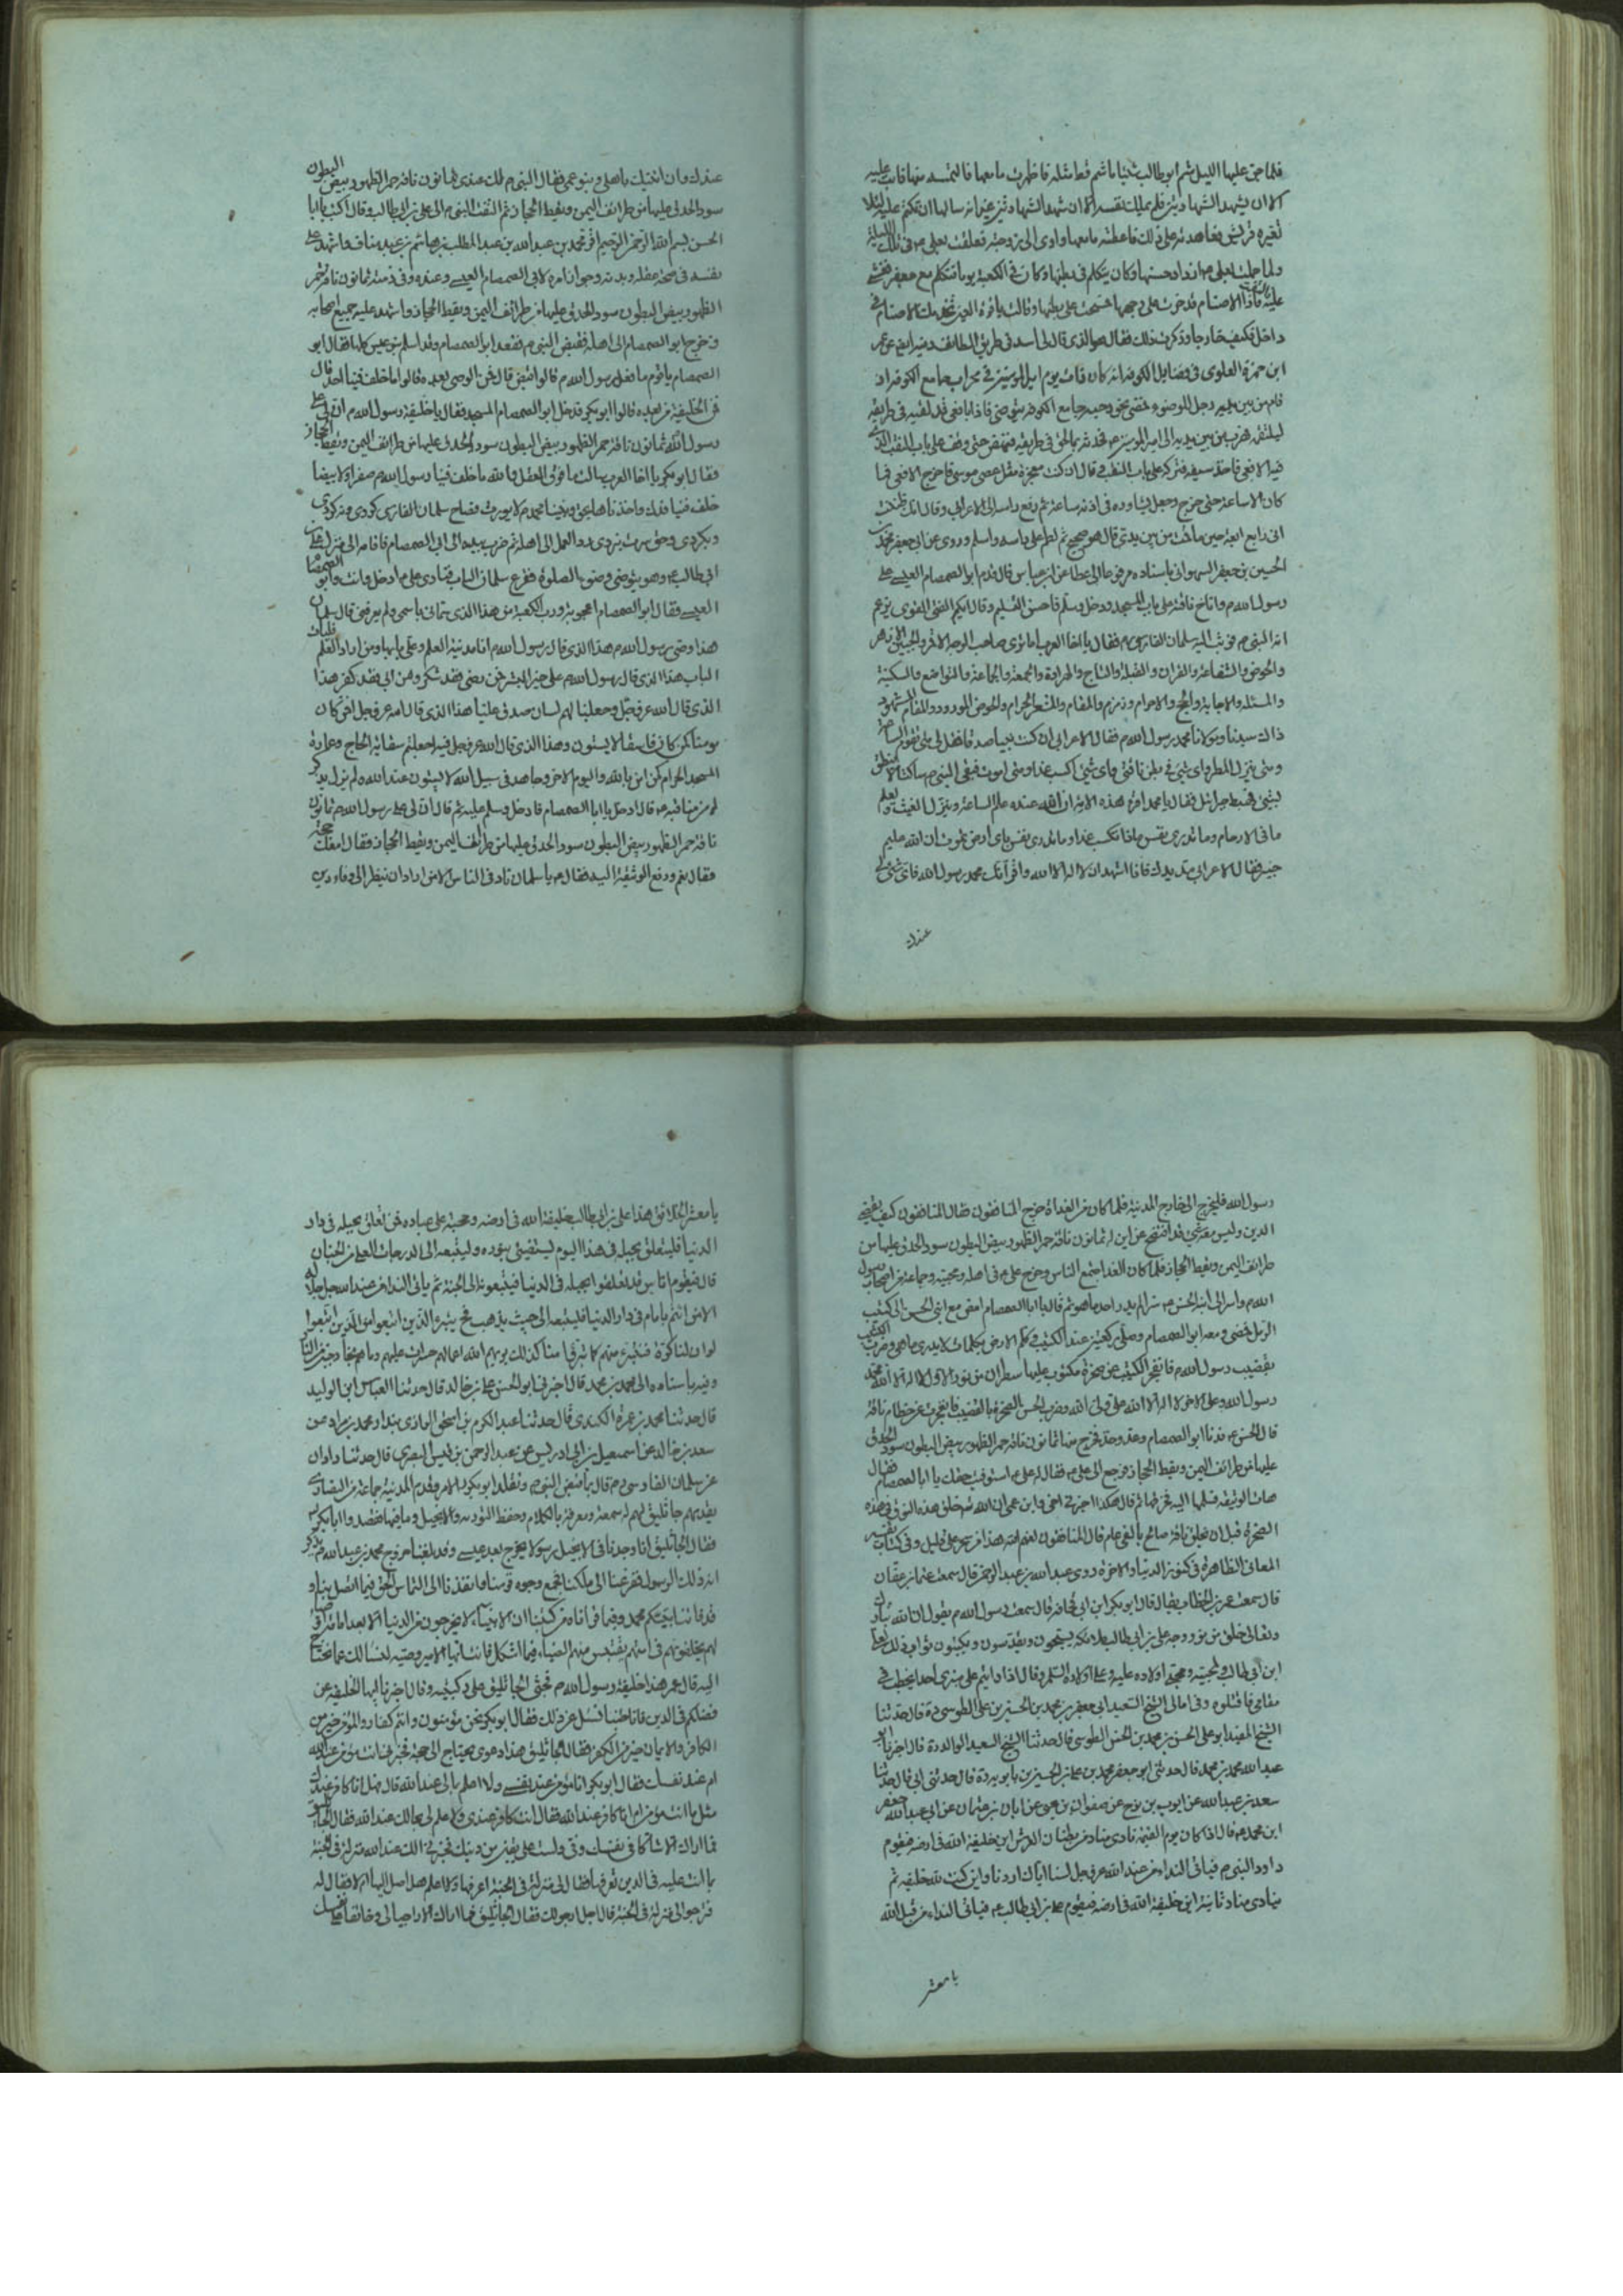 فلما جن عليها الليل شم ابو طالب شيئا ما شم قط مثله فاظهرت ما معها فالتمسه منها فابت عليه
الا ان يشهد الشهادتين فلم يملك نفسه الا ان شهد الشهادتين غير انه سالها ان تكتم عليه لئلا
تعيره قريش فعاهدته على ذلك فاعطته ما معها واوى الى زوجته فعلقت بعلي م في تلك الليلة
ولما حملت بعلي م ازداد حسنها وكان يتكلم في بطنها وكان في الكعبة يوما فتكلم مع جعفر فغشي
عليه فاذا الاصنام قد خرت على وجهها فمسحت على بطنها وقالت يا قرة العين تخدمك الاصنام في
داخل فكيف خارجا وذكرت ذلك فقال هو الذي قال لي اسد في طريق الطائف وفيه ايضا عن عمر
ابن حمزة العلوي في فضايل الكوفة انه كان ذات يوم امير المؤمنين في محراب جامع الكوفة اذ
قام من بين يديه رجل للوضوء فمضى نحو رحبة جامع الكوفة يتوضى فاذا بافعى قد لقيه في طريقه
ليلتقمه فهرب من بين يديه الى امير المؤمنين م فحدثه بما لحق في طريقه فنهض حتى وقف على باب النقب الذي
فيه الافعى فاخذ سيفه فتركه على باب النقب وقال ان كنت معجزة مثل عصى موسى فاخرج الافعى فما
كان الا ساعة حتى خرج وجعل يساوره في اذنه ساعة ثم رفع راسه الى الاعرابي وقال انك ظننت
اني رابع اربعة حين ما قمت من بين يدي قال هو صحيح ثم لطم على راسه واسلم وروى عن ابي جعفر محمد بن
الحسين بن جعفر السهواني باسناده مرفوعا الى عطا عن ابن عباس قال قدم ابو الصمصام العبسي على
رسول الله م واناخ ناقته على باب المسجد ودخل وسلم فاحسن التسليم وقال ايكم الفتى الغوي يزعم
انه النبي م فوثب اليه سلمان الفارسي م فقال يا اخا العرب اما ترى صاحب الوجه الاقمر والجبين الازهر
والحوض والشفاعة والقران والقبلة والتاج والهراوة والجمعة والجماعة والتواضع والسكينة
والمسئلة والاجابة والحج والاحرام وزمزم والمقام والمشعر الحرام والحوض المورود والمقام المشهود
ذاك سيدنا ومولانا محمد رسول الله م فقال الاعرابي ان كنت نبيا صدقا فقل لي متى تقوم الساعة
ومتى ينزل المطر واي شيء في بطن ناقتي واي شيء اكسب غدا ومتى اموت فبقي النبي م ساكتا لا ينطق
بشيء فهبط جبرائيل فقال يا محمد اقرء هذه الاية ان الله عنده علم الساعة وينزل الغيث ويعلم
ما في الارحام وما تدري نفس ماذا تكسب غدا وما تدري نفس باي ارض تموت ان الله عليم
خبير فقال الاعرابي مد يدك فانا اشهد ان لا اله الا الله واقر انك محمد رسول الله فاي شيء لي
عندك
عندك وان اتيتك باهلي وبنو عمي فقال النبي م لك عندي ثمانون ناقة حمر الظهور بيض البطون
سود الحدق عليها من طرائف اليمن ونقط الحجاز ثم التفت النبي م الى علي بن ابي طالب وقال اكتب يا ابا
الحسن بسم الله الرحمن الرحيم اقر محمد بن عبد الله بن عبد المطلب بن هاشم بن عبد مناف واشهد على
نفسه في صحة عقله وبدنه وجواز امره لابي الصمصام العبسي وعنده وفي ذمته ثمانون ناقة حمر
الظهور بيض البطون سود الحدق عليها من طرائف اليمن ونقط الحجاز واشهد عليه جميع اصحابه
وخرج ابو الصمصام الى اهله فقبض النبي م فقعد ابو الصمصام وقد اسلم بنو عبس كلها فقال ابو
الصمصام يا قوم ما فعل رسول الله م قالوا قبض قال فمن الوصي بعده قالوا ما خلف فينا احد قال
فمن الخليفة من بعده قالوا ابو بكر فدخل ابو الصمصام المسجد فقال يا خليفة رسول الله م ان لي على
رسول الله ثمانون ناقة حمر الظهور بيض البطون سود الحدق عليها من طرائف اليمن ونقط الحجاز
فقال ابو بكر يا اخا العرب سالت ما فوق العقل والله ما خلف فينا رسول الله م صفرا ولا بيضا
خلف فينا فدك واخذناها نحن ونبينا محمد م لا يورث فصاح سلمان الفارسي كردي ونكردي
وبكردي وحق ميرت ببردي ردوا العمل الى اهله ثم ضرب بيده الى ابي الصمصام فاقامه الى منزل علي بن
ابي طالب م وهو يتوضى وضوء الصلوة فقرع سلمان الباب فنادى علي م ادخل وانت وابو الصمصام
العبسي فقال ابو الصمصام اعجوبة ورب الكعبة من هذا الذي سماني باسمي ولم يعرفني قال سلمان
هذا وصي رسول الله م هذا الذي قال رسول الله م انا مدينة العلم وعلي بابها ومن اراد العلم فليات
الباب هذا الذي قال رسول الله م علي خير البشر فمن رضى فقد شكر ومن ابى فقد كفر هذا
الذي قال الله عز وجل وجعلنا لهم لسان صدق عليا هذا الذي قال الله عز وجل افمن كان
مومنا كمن كان فاسقا لا يستون وهذا الذي قال الله عز وجل فيه اجعلتم سقاية الحاج وعمارة
المسجد الحرام كمن امن بالله واليوم الاخر وجاهد في سبيل الله لا يستون عند الله ولم يزل يذكر
له من مناقبه م قال ادخل يا ابا الصمصام فادخل وسلم عليه ثم قال ان لي على رسول الله م ثمانون
ناقة حمر الظهور بيض البطون سود الحدق عليها من طرائف اليمن ونقط الحجاز فقال امعك حجة
فقال نعم ودفع الوثيقة اليه فقال م يا سلمان ناد في الناس الا من اراد ان ينظر الى وفاء دين
رسول الله فليخرج الى خارج المدينة فلما كان من الغداة خرج المنافقون فقال المنافقون كيف يقضي
الدين وليس معه شيء قد افتضح عن اين له ثمانون ناقة حمر الظهور بيض البطون سود الحدق عليها من
طرائف اليمن ونقط الحجاز فلما كان الغد اجتمع الناس وخرج علي م في اهله ومحبيه وجماعة من اصحاب رسول
الله م واسر الى ابنه الحسن م سرا لم يدر احد ما هو ثم قال يا ابا الصمصام امض مع ابني الحسن الى كثيب
الرمل فمضى ومعه ابو الصمصام وصلى ركعتين عند الكثيب وكلم الارض بكلمات لا يدرى ما هي وضرب الكثيب
بقضيب رسول الله م فانفجر الكثيب عن صخرة مكتوب عليها سطران من نور الاول لا اله الا الله محمد
رسول الله وعلى الاخر لا اله الا الله علي ولي الله وضرب الحسن الصخرة بالقضيب فانفجرت عن خطام ناقة
قال الحسن م قدنا ابو الصمصام وعد وحد فخرج منا ثمانون ناقة حمر الظهور بيض البطون سود الحدق
عليها من طرائف اليمن ونقط الحجاز ورجع الى علي م فقال له علي م استوفيت حقك يا ابا الصمصام فقال
هات الوثيقة فسلمها اليه فخرقها ثم قال هكذا اخبرني اخي وابن عمي ان الله م خلق هذه النوق في هذه
الصخرة قبل ان يخلق ناقة صالح بالفي عام قال المنافقون لعنهم الله هذا من سحر علي قليل وفي كتاب تفسير
المعاني الظاهرة في كنوز الدنيا والاخرة روى عبد الله بن عبد الرحمن قال سمعت عثمان بن عفان
قال سمعت عمر بن الخطاب يقال قال ابو بكر ابن ابي قحافة قال سمعت رسول الله م يقول ان الله تبارك
وتعالى خلق من نور وجه علي بن ابي طالب ملائكة يسبحون ويقدسون ويكتبون ثواب ذلك لعلي
ابن ابي طالب ولمحبيه ومحبي اولاده عليه وعلى اولاده السلم وقال اذا رايتم على منبري احدا يخطب في
مقامي فاقتلوه وفي امالي الشيخ السعيد ابي جعفر بن محمد بن الحسين بن علي الطوسي ره قال حدثنا
الشيخ المفيد ابو علي الحسن بن محمد بن الحسن الطوسي قال حدثنا الشيخ السعيد الوالد ره قال اخبرنا ابو
عبد الله محمد بن محمد قال حدثني ابو جعفر محمد بن علي بن الحسين بن بابويه ره قال حدثني ابي قال حدثنا
سعد بن عبد الله عن ايوب بن نوح عن صفوان بن يحيى عن ابان بن عثمان عن ابي عبد الله جعفر
ابن محمد م قال اذا كان يوم القيمة نادى مناد من بطنان العرش اين خليفة الله في ارضه فيقوم
داود النبي م فياتي النداء من عند الله عز وجل لسنا اياك اردنا وان كنت لله خليفة ثم
ينادي مناد ثانية اين خليفة الله في ارضه فيقوم علي بن ابي طالب م فياتي النداء من قبل الله
يا معشر
يا معشر الخلائق هذا علي بن ابي طالب خليفة الله في ارضه وحجته على عباده فمن تعلق بحبله في دار
الدنيا فليتعلق بحبله في هذا اليوم ليستضيئ بنوره وليتبعه الى الدرجات العلى من الجنان
قال فيقوم اناس قد تعلقوا بحبله في الدنيا فيتبعونه الى الجنة ثم ياتي النداء من عند الله جل جلاله
الا من ائتم بامام في دار الدنيا فليتبعه الى حيث يذهب فح يتبرء الذين اتبعوا من الذين اتبعوا
لو ان لنا كرة فنتبرء منهم كما تبرؤا منا كذلك يريهم الله اعمالهم حسرات عليهم وما هم بخارجين من النار
وفيه باسناده الى محمد بن محمد قال اخبرني ابو الحسن علي بن خالد قال حدثنا العباس ابن الوليد
قال حدثنا محمد بن عمرة الكندي قال حدثنا عبد الكريم بن اسحق الرازي بندار محمد بن مراد عن
سعد بن خالد عن اسمعيل بن ابي ادريس عن عبد الرحمن بن قيس البصري قال حدثنا زاذان
عن سلمان الفارسي م قال لما قبض النبي م وتقلد ابو بكر الامر وقدم المدينة جماعة من النصارى
يقدمهم جاثليق لهم له سمعة ومعرفة بالكلام وحفظ التوراة والانجيل وما فيها فقصدوا ابا بكر
فقال الجاثليق انا وجدنا في الانجيل رسولا يخرج بعد عيسى وقد بلغنا خروج محمد بن عبد الله م يذكر
انه ذلك الرسول ففزعنا الى ملكنا فجمع وجوه قومنا وانفذنا الى التماس الحق فيما اتصل بنا و
قد فاتنا نبيكم محمد وفيما قراناه من كتبنا ان الانبياء لا يخرجون من الدنيا الا بعد اقامة اوصياء
لهم يخلفونهم في اممهم يقتبس منهم الضياء فيما اشكل فانت ايها الامير وصيه لنسالك عما نحتاج
اليه قال عمر هذا خليفة رسول الله م فجثى الجاثليق على ركبتيه وقال اخبرنا ايها الخليفة عن
فضلكم في الدين فانا جئنا نسئل عن ذلك فقال ابو بكر نحن مؤمنون وانتم كفار والمؤمن خير من
الكافر والايمان خير من الكفر فقال الجاثليق هذا دعوى يحتاج الى حجة فخبرني انت مؤمن عند الله
ام عند نفسك فقال ابو بكر انا مؤمن عند نفسي ولا علم لي عند الله قال فهل انا كافر عندك
مثل ما انت مؤمن ام انا كافر عند الله فقال انت كافر عندي ولا علم لي بحالك عند الله فقال الجاثليق
فما اراك الا شاكا في نفسك وفي ولست على يقين من دينك فخبرني الك عند الله منزلة في الجنة
بما انت عليه في الدين تعرفها فقال لي منزلة في الجنة اعرفها ولا اعلم هل اصل اليها ام لا فقال له
فترجو لي منزلة في الجنة قال اجل ارجو لك فقال الجاثليق فما اراك الا راجيا لي وخائفا على نفسك